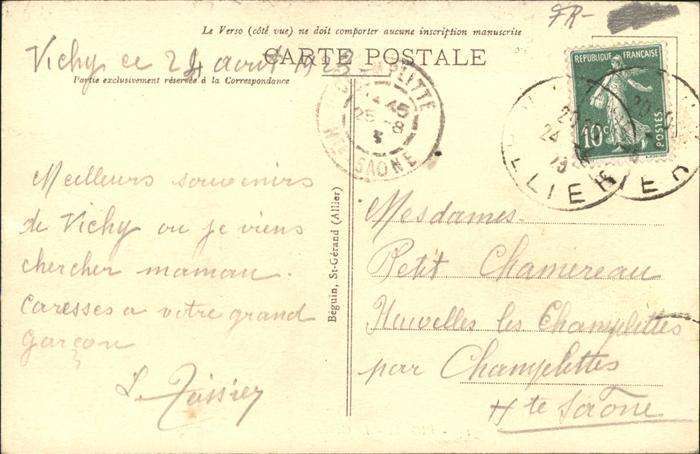 FR-
Le Verso (côté vue) ne doit comporter aucune inscription manuscrite
CARTE POSTALE
Vichy ce 24 août
Partie exclusivement réservée à la Correspondance
CHAMPLITTE
45
25-8
Hte SAÔNE
RÉPUBLIQUE FRANÇAISE
10c
POSTES
24
ALLIER
Meilleurs souvenirs
de Vichy ou je viens
chercher maman.
Caresses a votre grand
garçon
L. Teissier
Béguin, St-Gérand (Allier)
Mesdames
Petit Chamereau
Neuvelles les Champlettes
par Champlettes
Hte Saône